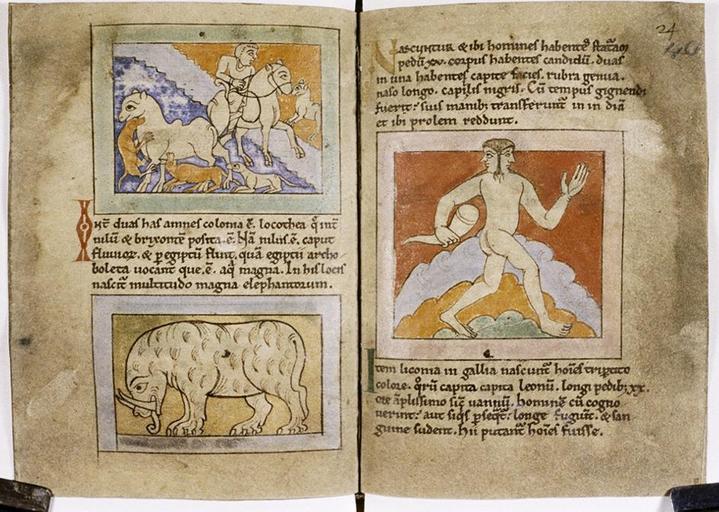 Inṫ duas has amnes colonia ē. locothea q̇ inṫ
nilū & brixontē posita. ē. Nā nilus. ē. caput
fluuioꝝ. & ꝑ egiptū fluit, quā egiptii archo
boleta uocant que. ē. aq̄ magna. In his locis
nascit̄ multitudo magna elephantorum.
24
Nascuntur & ibi homines habentes staturā
pedū .xv. corpus habentes candidū. duas
in una habentes capite facies. rubra genua.
naso longo. capillis nigris. Cū tempus gignendi
fuerit: suis manibus transferunt in indiā
et ibi prolem reddunt.
Item liconia in gallia nascunt̄ hoīes tripertito
colore. qͦrū capita capita leonū. longi pedibꝫ xx.
ore āplissimo sic̄ uannū. hominē cū cogno
uerint: aut siq̄s ꝑseqt̄. longe fugiūt. & san
guine sudant. hii putant̄ hoīes fuisse.